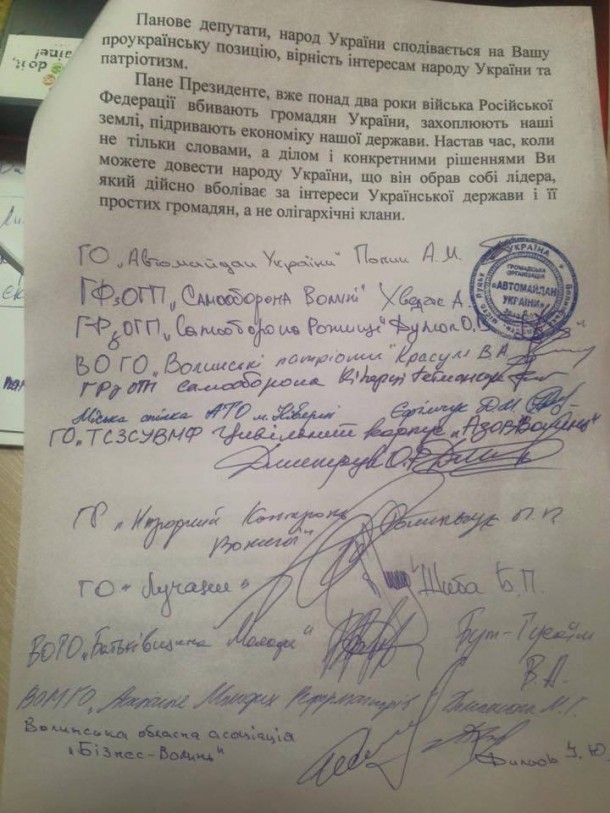 Панове депутати, народ України сподівається на Вашу
проукраїнську позицію, вірність інтересам народу України та
патріотизм.
Пане Президенте, вже понад два роки війська Російської
Федерації вбивають громадян України, захоплюють наші
землі, підривають економіку нашої держави. Настав час, коли
не тільки словами, а ділом і конкретними рішеннями Ви
можете довести народу України, що він обрав собі лідера,
який дійсно вболіває за інтереси Української держави і її
простих громадян, а не олігархічні клани.
ГО „Автомайдан України" А.М.
УКРАЇНА
ГРОМАДСЬКА
ОРГАНІЗАЦІЯ
«АВТОМАЙДАН
УКРАЇНИ»
ГФзОГП „Самооборона Волині"
ГФзОГП „Самооборона Рожище"
ВО ГО „Волинські патріоти" Красул В.А.
самооборона Ківерці
Міська спілка АТО м. Ківерці Д.М.
ГО „ТСЗСУВМФ Цивільний корпус „Азов Волинь"
ГР „Народний Контроль
Волині"
ГО «Лучани» Шиба Б.П.
ВОГО „Батьківщина Молода"
В.А.
ВОМГО „ Молодих Реформаторів М.Г.
Волинська обласна асоціація
„Бізнес-Волинь"